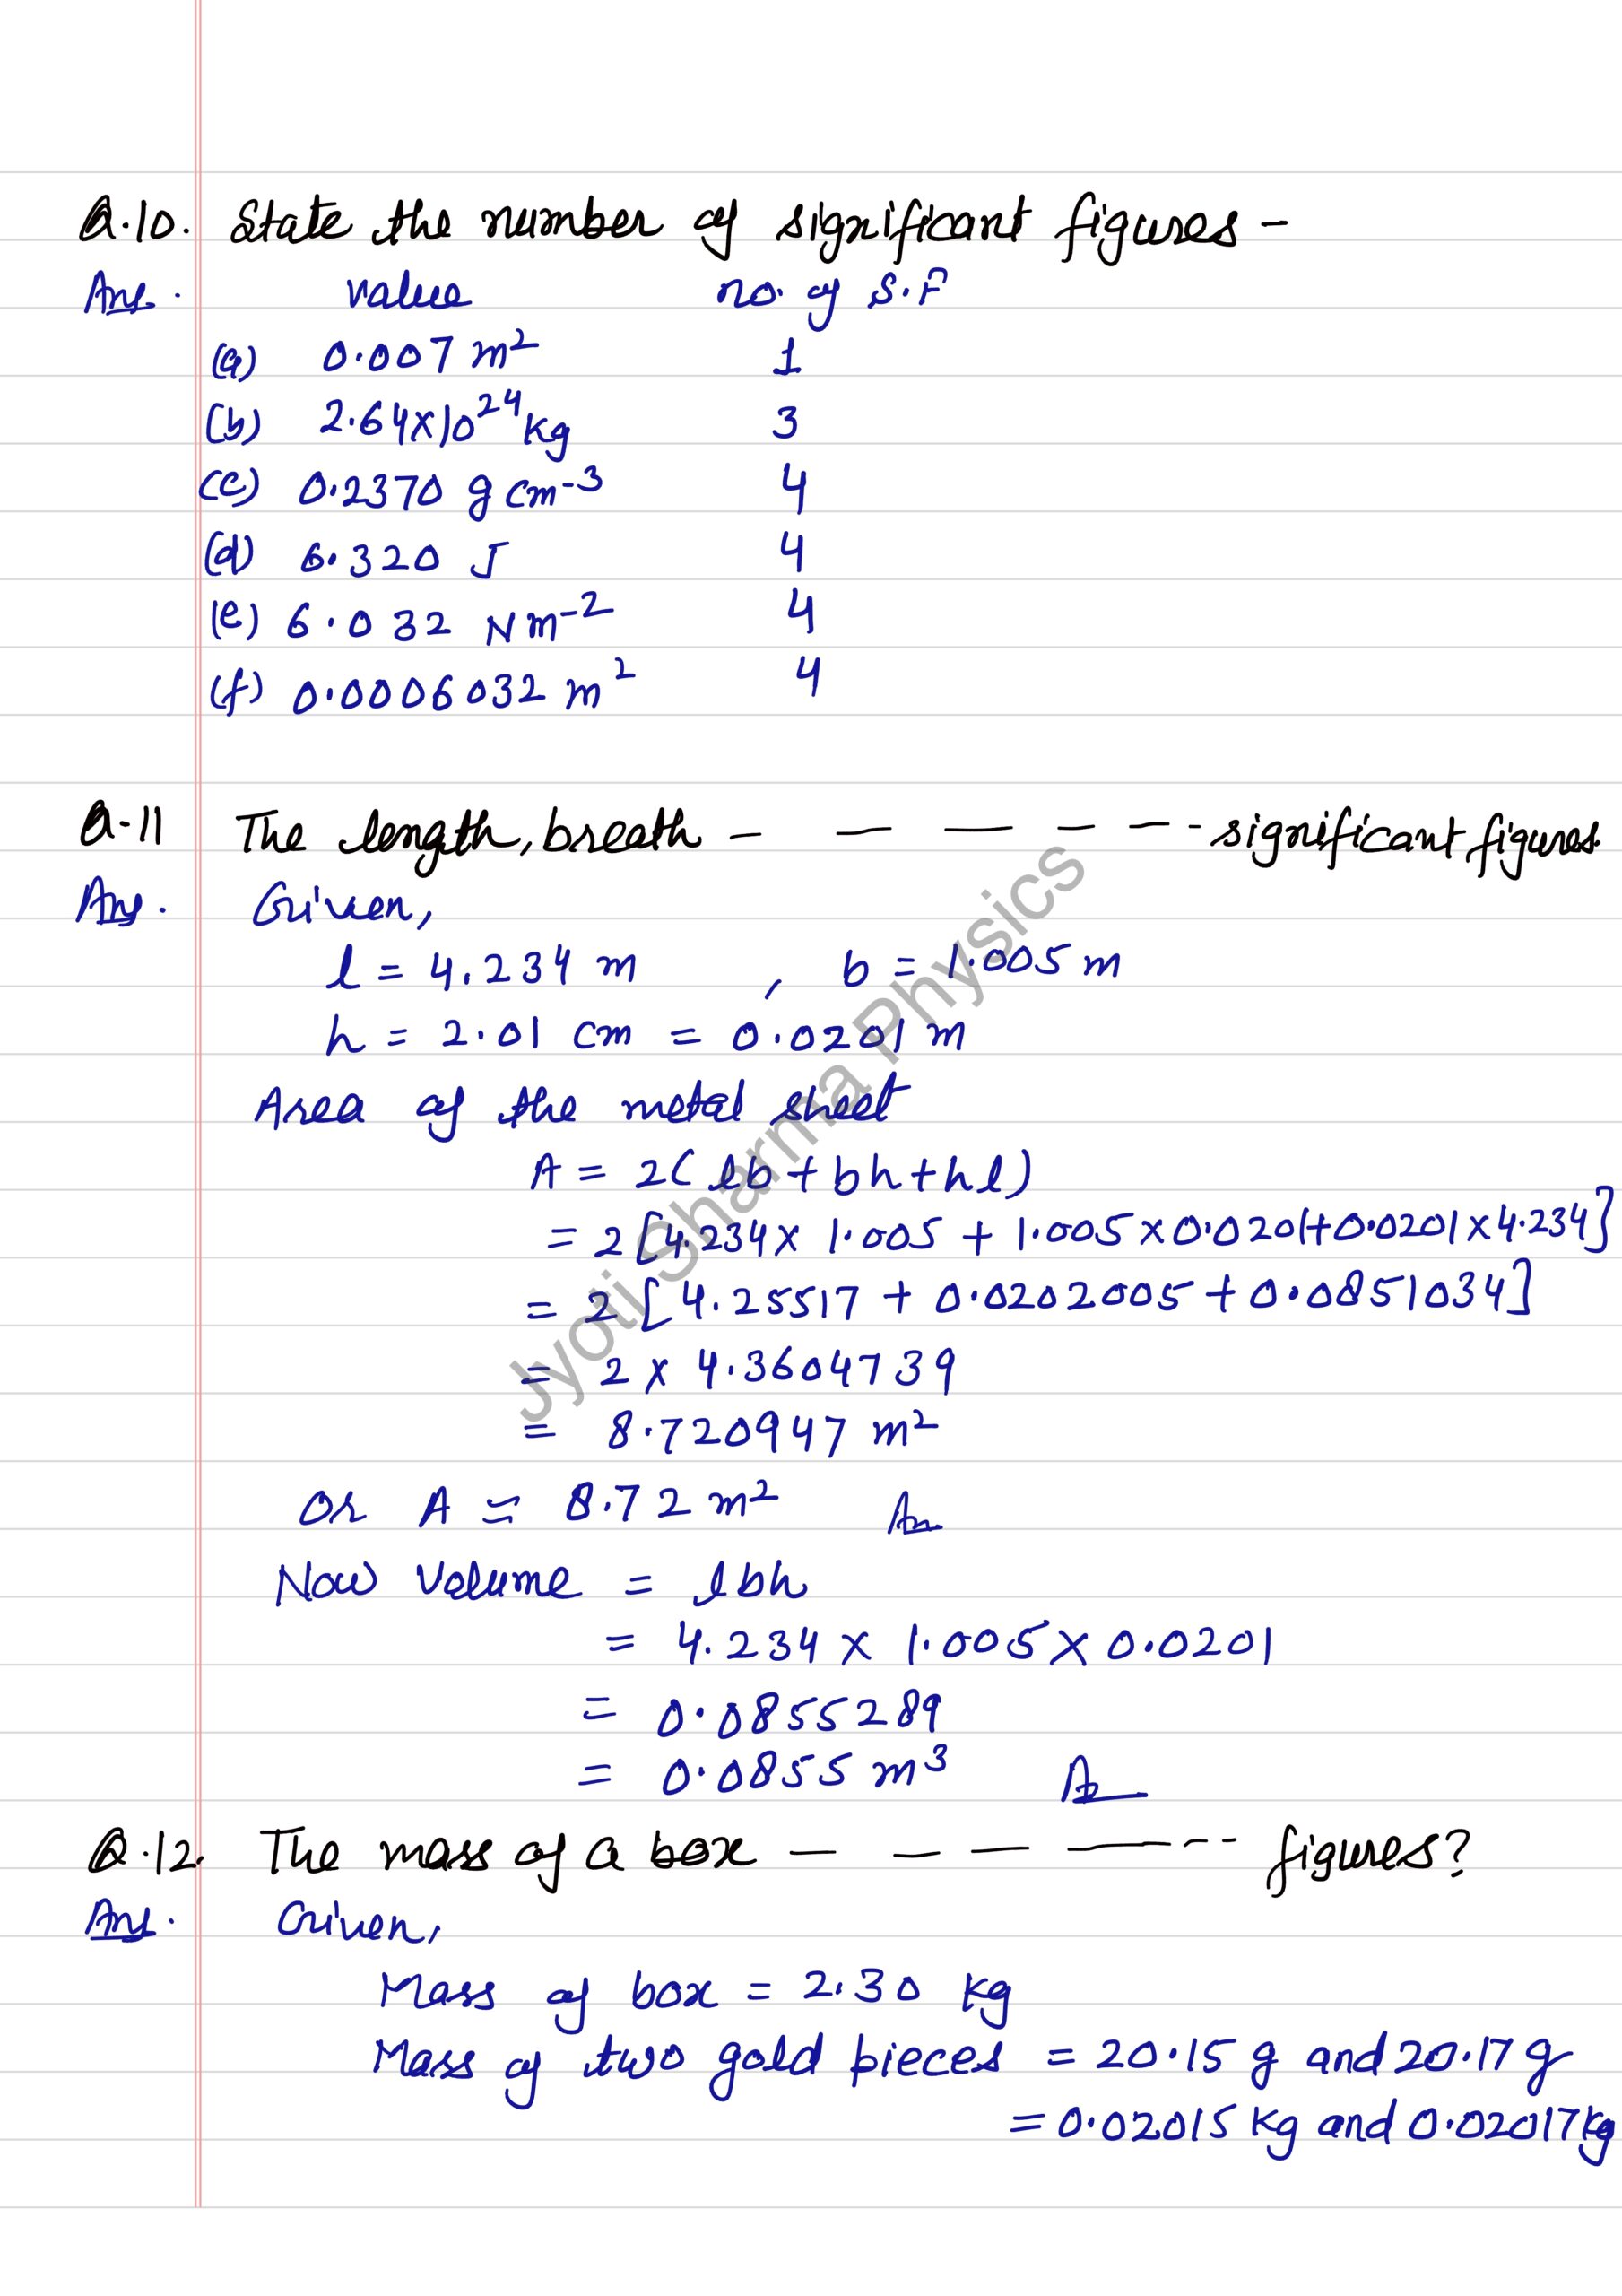 Q.10. State the number of significant figures -
Ans. value no. of S.F
(a) 0.007 m² 1
(b) 2.64×10²⁴ kg 3
(c) 0.2370 g cm⁻³ 4
(d) 6.320 J 4
(e) 6.032 N m⁻² 4
(f) 0.0006032 m² 4
Q.11 The length, breath — — — — - - significant figures
Ans. Given,
l = 4.234 m , b = 1.005 m
h = 2.01 cm = 0.0201 m
Area of the metal sheet
A = 2(lb + bh + hl)
= 2[4.234 × 1.005 + 1.005 × 0.0201 + 0.0201 × 4.234]
= 2[4.25517 + 0.0202005 + 0.0851034]
= 2 × 4.3604739
= 8.720947 m²
or A ≃ 8.72 m² An
Now Volume = lbh
= 4.234 × 1.005 × 0.0201
= 0.0855289
= 0.0855 m³
Q.12. The mass of a box — — — — - - figures?
Ans. Given,
Mass of box = 2.30 kg
Mass of two gold pieces = 20.15 g and 20.17 g
= 0.02015 kg and 0.02017 kg
Jyoti Sharma Physics